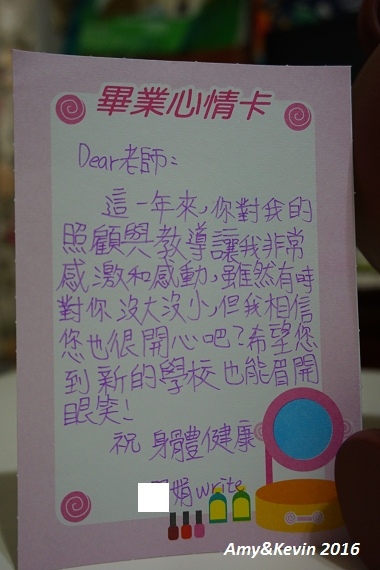 畢業心情卡
Dear老師:
這一年來,你對我的
照顧與教導讓我非常
感激和感動,雖然有時
對你沒大沒小,但我相信
您也很開心吧?希望您
到新的學校也能眉開
眼笑!
祝 身體健康
娟write
Amy&Kevin 2016